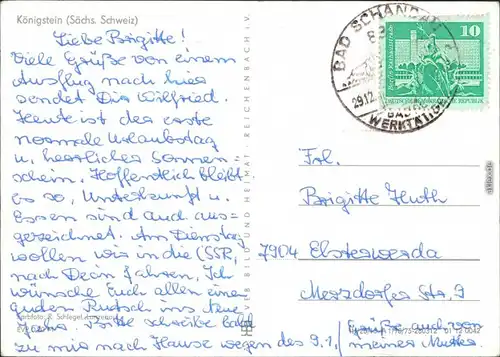 Königstein (Sächs. Schweiz)
Liebe Brigitte!
Viele Grüße von einem
Ausflug nach hier
sendet Dir Wilfried.
Heute ist der erste
normale Urlaubstag
u. herrlicher Sonnen-
schein. Hoffentlich bleibt
es so, Unterkunft u.
Essen sind auch aus-
gezeichnet. Am Dienstag
wollen wir in die ČSSR,
nach Decin fahren. Ich
wünsche Euch allen einen
guten Rutsch ins neue
Jahr. Bitte schreibe bald
zu mir nach Hause wegen des 9.1.,
Grüße auch von
meiner Mutter
VEB BILD UND HEIMAT · REICHENBACH I. V.
BAD SCHANDAU
29.12.
BAD
WERKTÄTIGE
10
DEUTSCHE DEMOKRATISCHE REPUBLIK
Frl.
Brigitte Huth
7904 Elsterwerda
Merzdorfer Str. 9
R. Schlegel,